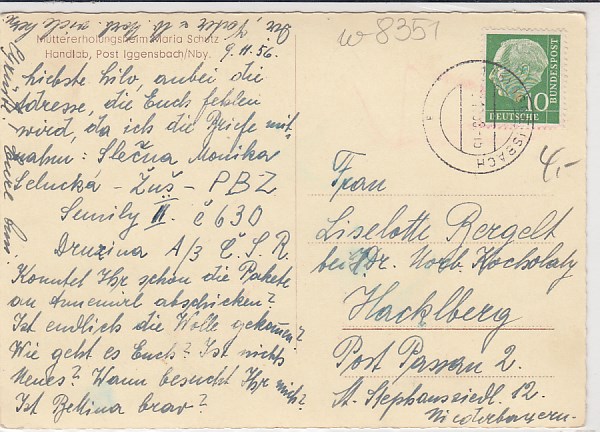 w 8351
Müttererholungsheim Maria Schutz
Handlab, Post Iggensbach/Nby.
9. II. 56.
Liebste Lilo, anbei die
Adresse, die Euch fehlen
wird, da ich die Briefe mit-
nahm: Slečna Monika
Selucká - Žuš - PBZ
Semily II. č 630
Druzina A/3 Č.S.R.
Konntet Ihr schon die Pakete
an Annemirl abschicken?
Ist endlich die Wolle gekommen?
Wie geht es Euch? Ist nichts
Neues? Wann besucht Ihr mich?
Ist Bettina brav?
DEUTSCHE
BUNDESPOST
10
4,-
Frau
Liselotte Bergelt
bei Dr. Norb. Kocholaty
Hacklberg
Post Passau 2.
St. Stephanssiedl. 12.
Niederbayern.